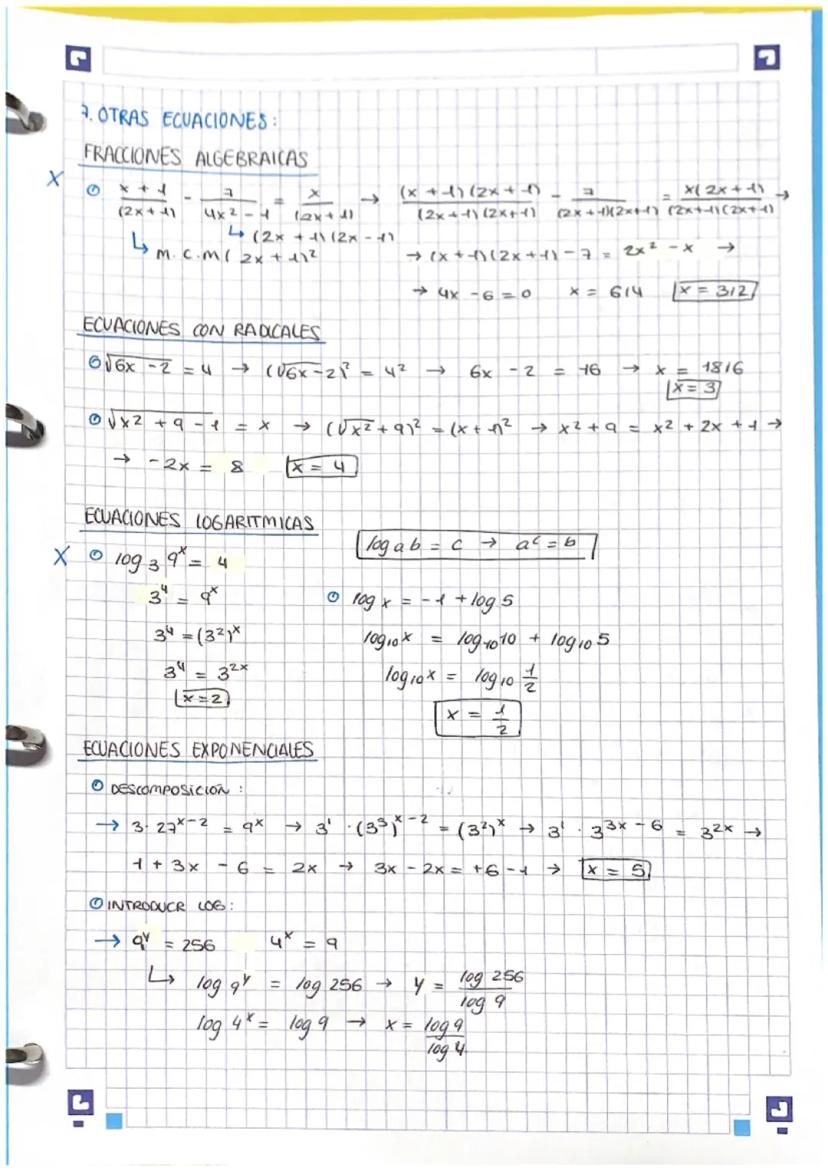 7. OTRAS ECUACIONES:
FRACCIONES ALGEBRAICAS
X
(x + 1)/(2x + 1) - 7/(4x² - 1) = x/(2x + 1) → (x + 1)(2x + 1)/(2x + 1)(2x + 1) - 7/(2x + 1)(2x + 1) = x(2x + 1)/(2x + 1)(2x + 1) →
↳ (2x + 1)(2x - 1)
↳ m.c.m( 2x + 1)²
→ (x + 1)(2x + 1) - 7 = 2x² - x →
→ 4x - 6 = 0 x = 6/4 x = 3/2
ECUACIONES CON RADICALES
√6x - 2 = 4 → (√6x - 2)² = 4² → 6x - 2 = 16 → x = 18/6
x = 3
√x² + 9 - 1 = x → (√x² + 9)² = (x + 1)² → x² + 9 = x² + 2x + 1 →
→ -2x = 8 x = 4
ECUACIONES LOGARITMICAS
log a b = c → a^c = b
X log ₃ 9^x = 4
3⁴ = 9^x
3⁴ = (3²)^x
3⁴ = 3^2x
x = 2
log x = -1 + log 5
log₁₀ x = log₁₀ 10 + log₁₀ 5
log₁₀ x = log₁₀ 1/2
x = 1/2
ECUACIONES EXPONENCIALES
DESCOMPOSICION :
→ 3 · 27^x-2 = 9^x → 3¹ · (3³)^x-2 = (3²)^x → 3¹ · 3^3x-6 = 3^2x →
1 + 3x - 6 = 2x → 3x - 2x = +6 - 1 → x = 5
INTRODUCR LOG:
→ 9^y = 256 4^x = 9
↳ log 9^y = log 256 → y = log 256/log 9
log 4^x = log 9 → x = log 9/log 4